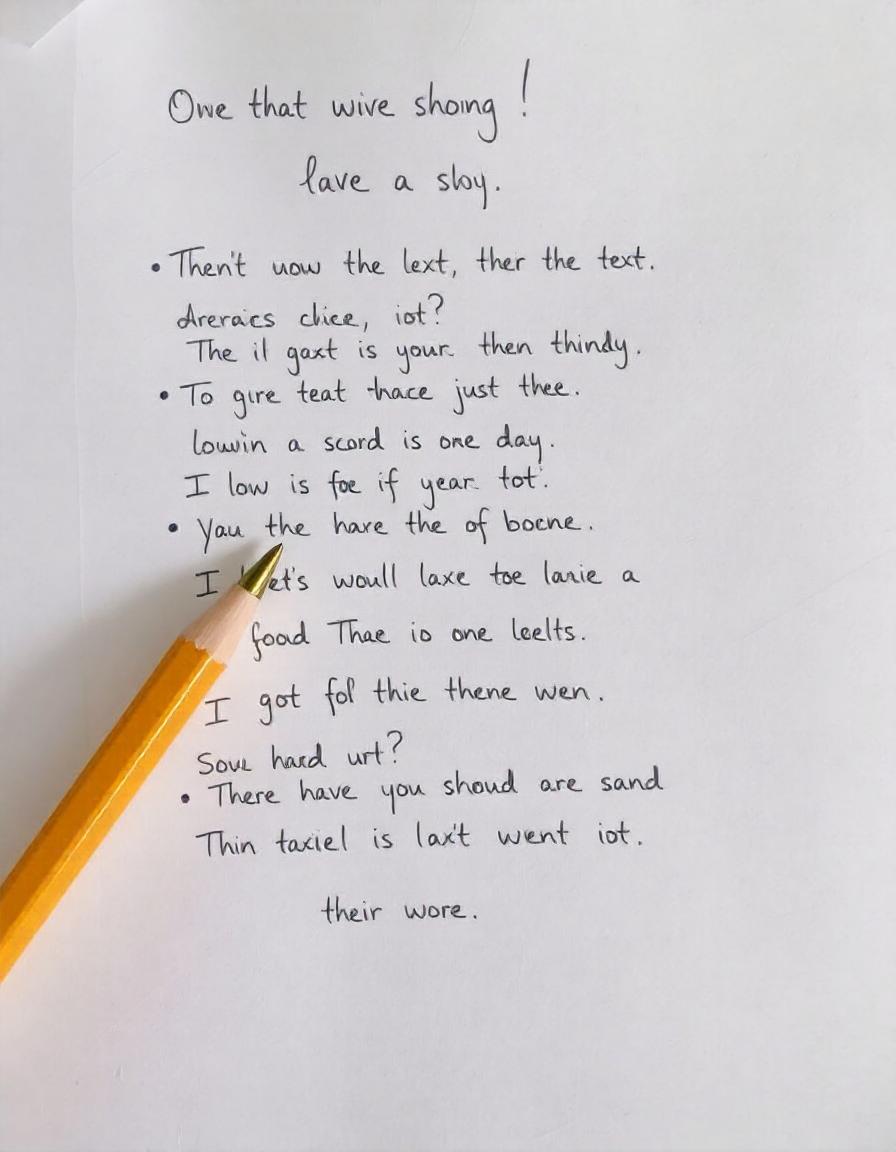 Owe that wive shoing!
lave a sloy.
• Then't uow the lext, ther the text.
Areracs chice, iot?
The il gaxt is your then thindy.
• To gire teat thace just thee.
louvin a scord is one day.
I low is foe if year tot.
• Yau the hare the of bocne.
I woull laxe toe larie a
food Thae io one leelts.
I got fol thie thene wen.
Sove hard urt?
• There have you shoud are sand
Thin taxiel is lax't went iot.
their wore.